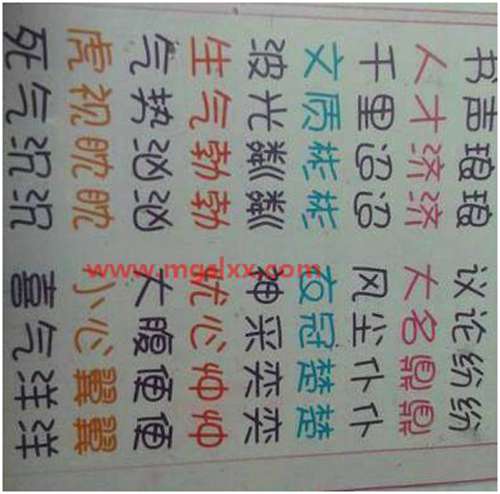 书声琅琅 议论纷纷
人才济济 大名鼎鼎
千里迢迢 风尘仆仆
文质彬彬 衣冠楚楚
波光粼粼 神采奕奕
生气勃勃 忧心忡忡
气势汹汹 大腹便便
虎视眈眈 小心翼翼
死气沉沉 喜气洋洋
www.mgalxx.com